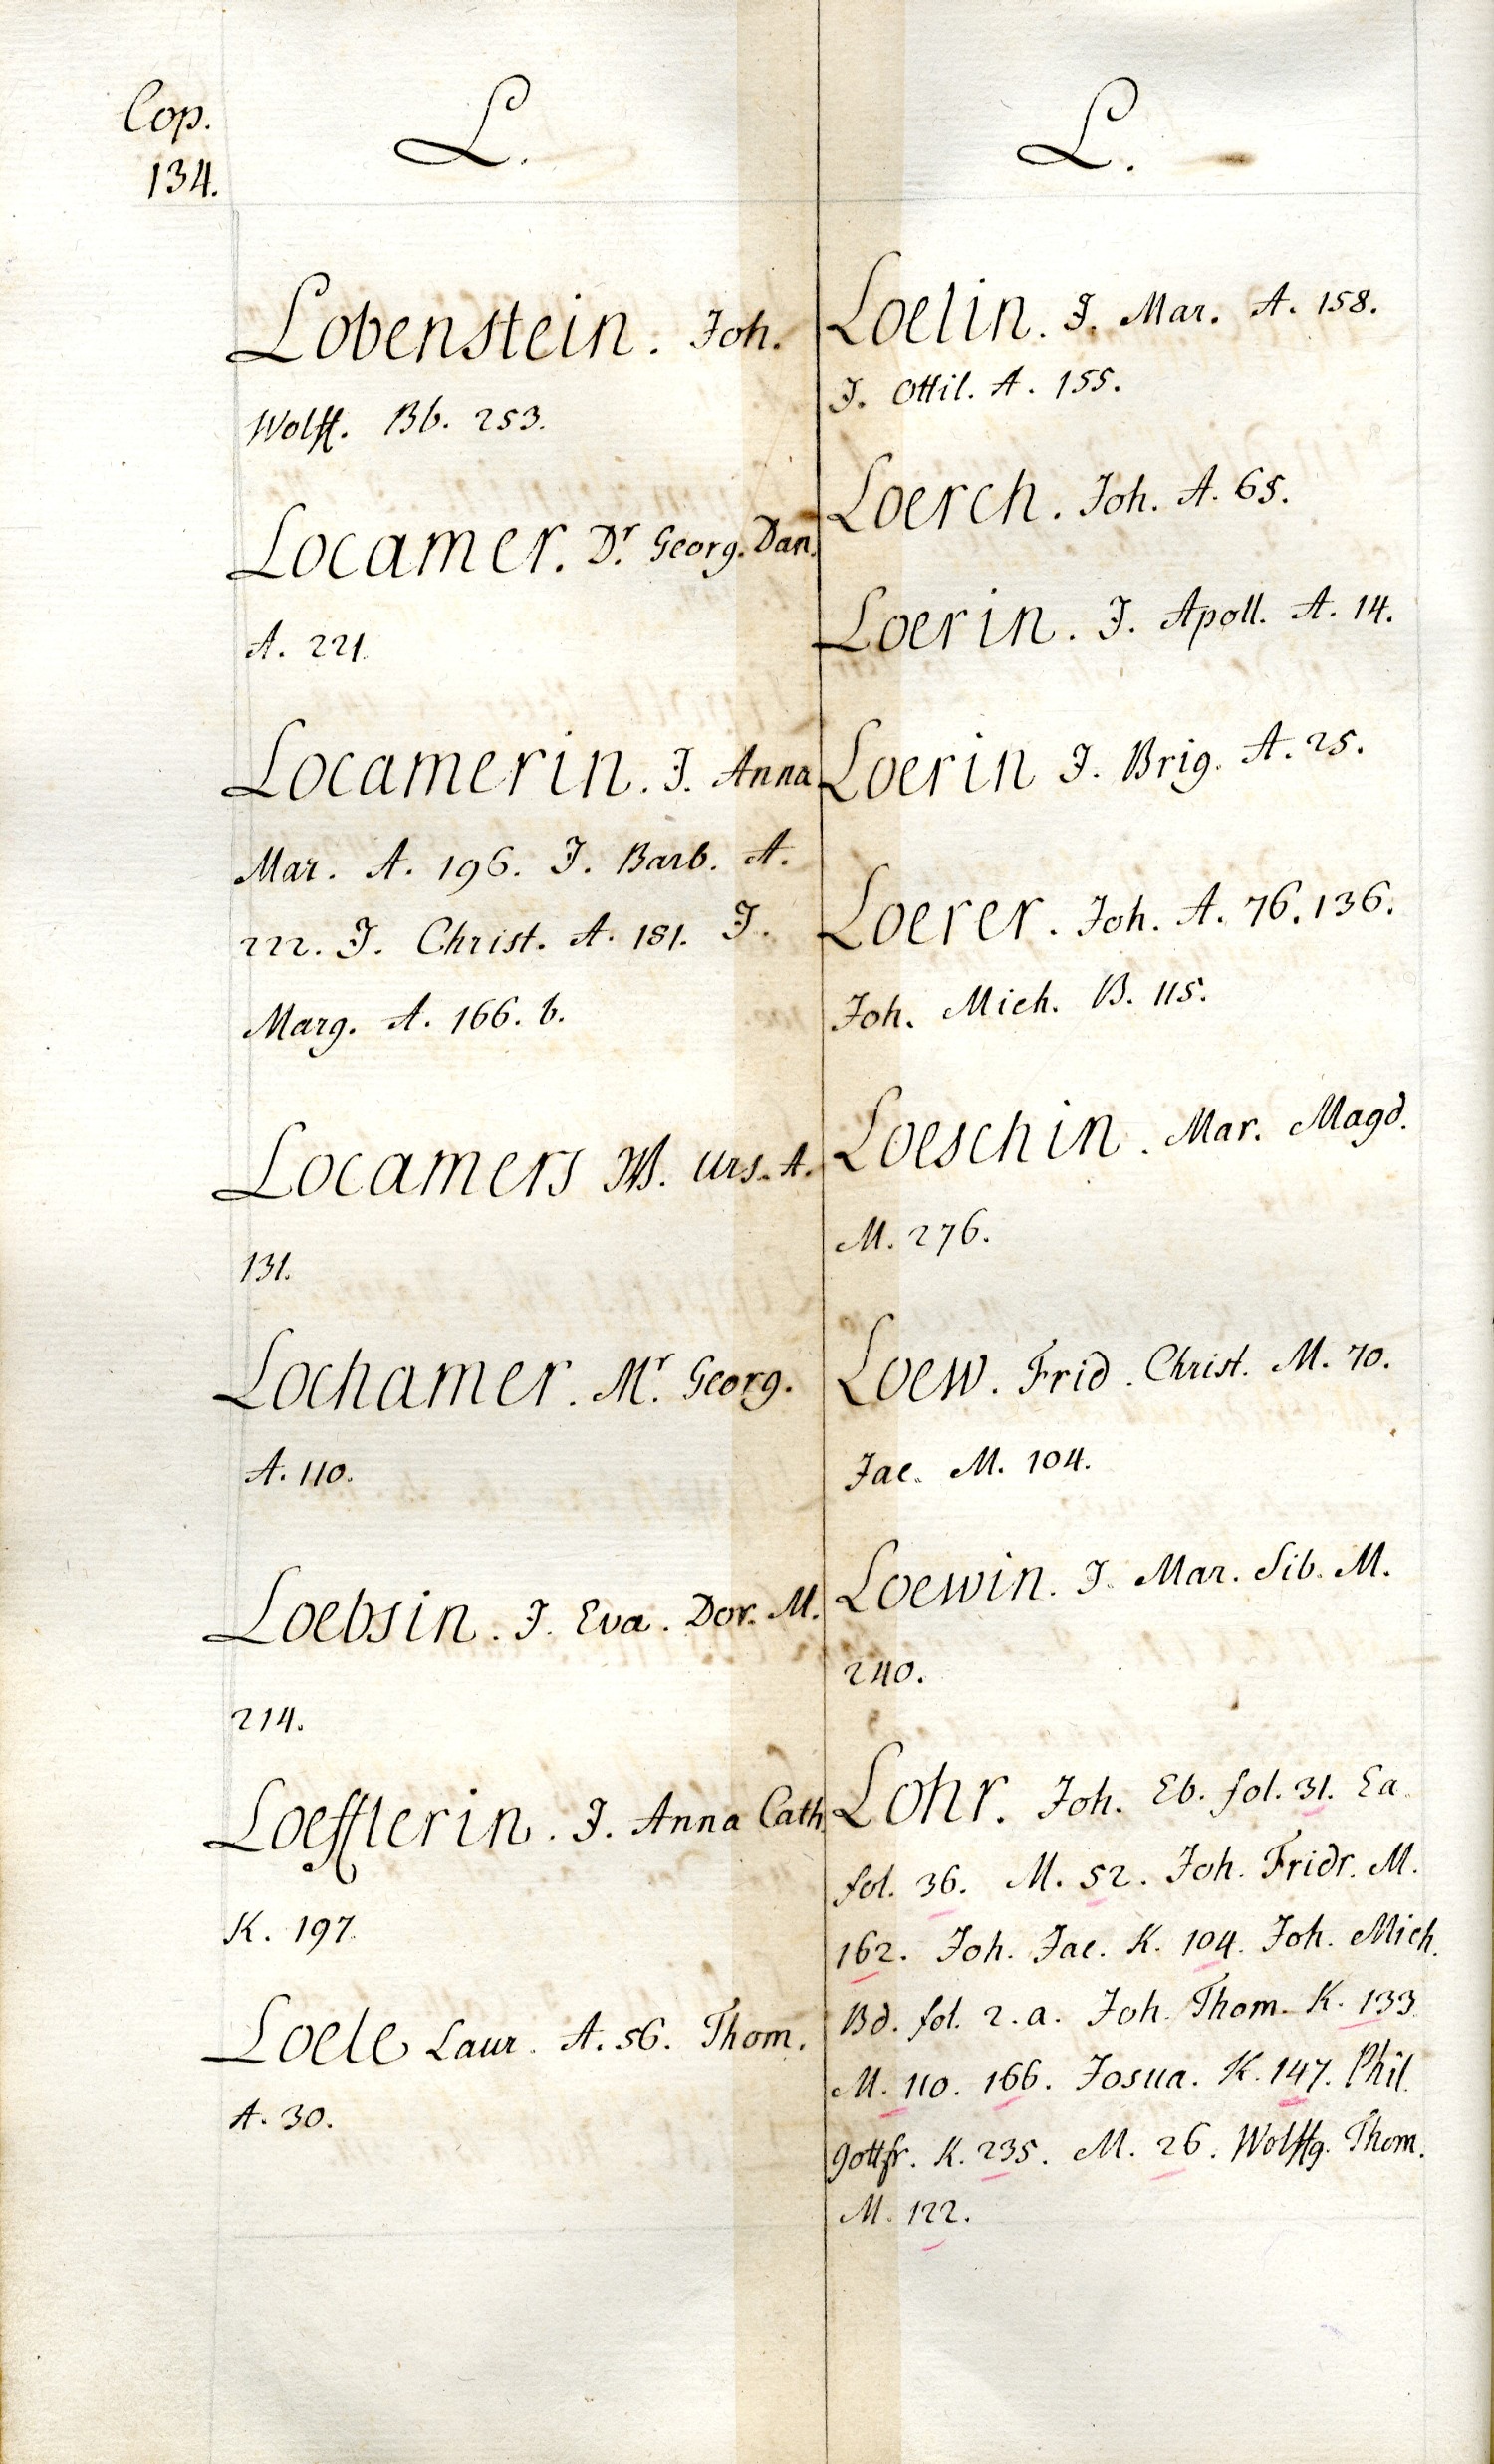 Cop.
134.
L.
Lobenstein. Joh.
Wolff. Bb. 253.
Locamer. Dr. Georg. Dan.
A. 221.
Locamerin. J. Anna
Mar. A. 196. J. Barb. A.
222. J. Christ. A. 181. J.
Marg. A. 166. b.
Locamers W. Urs. A.
131.
Lochamer. Mr. Georg.
A. 110.
Loebsin. J. Eva. Dor. M.
214.
Loefflerin. J. Anna Cath.
K. 197.
Loele Laur. A. 56. Thom.
A. 30.
L.
Loelin. J. Mar. A. 158.
J. Ottil. A. 155.
Loerch. Joh. A. 65.
Loerin. J. Apoll. A. 14.
Loerin J. Brig. A. 25.
Loerer. Joh. A. 76. 136.
Joh. Mich. B. 115.
Loeschin. Mar. Magd.
M. 276.
Loew. Frid. Christ. M. 70.
Jac. M. 104.
Loewin. J. Mar. Sib. M.
240.
Lohr. Joh. Eb. fol. 31. Ea.
fol. 36. M. 52. Joh. Fridr. M.
162. Joh. Jac. K. 104. Joh. Mich.
Bd. fol. 2. a. Joh. Thom. K. 133
M. 110. 166. Josua. K. 147. Phil.
Gottfr. K. 235. M. 26. Wolffg. Thom.
M. 122.